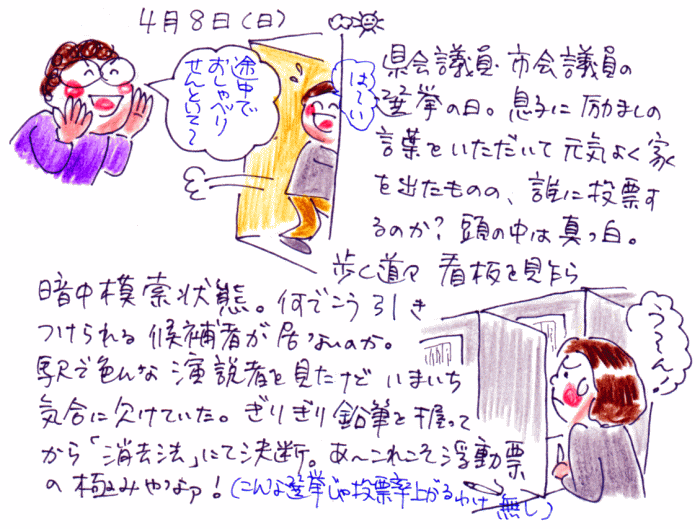 4月8日(日)
途中で
おしゃべり
せんといて〜
は〜い
県会議員・市会議員の
選挙の日。息子に励ましの
言葉をいただいて元気よく家
を出たものの、誰に投票す
るのか?頭の中は真っ白。
歩く道々看板を見ながら
暗中模索状態。何でこう引き
つけられる候補者が居ないのか。
駅で色んな演説者を見たけど いまいち
気合に欠けていた。ぎりぎり鉛筆を握って
から「消去法」にて決断。あ〜これこそ浮動票
の極みやなァ!(こんな選挙じゃ投票率上がるわけ無し)
う〜ん!